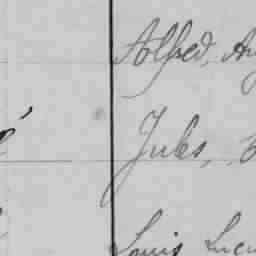 Alfred, Au
Jules,
Louis Luci